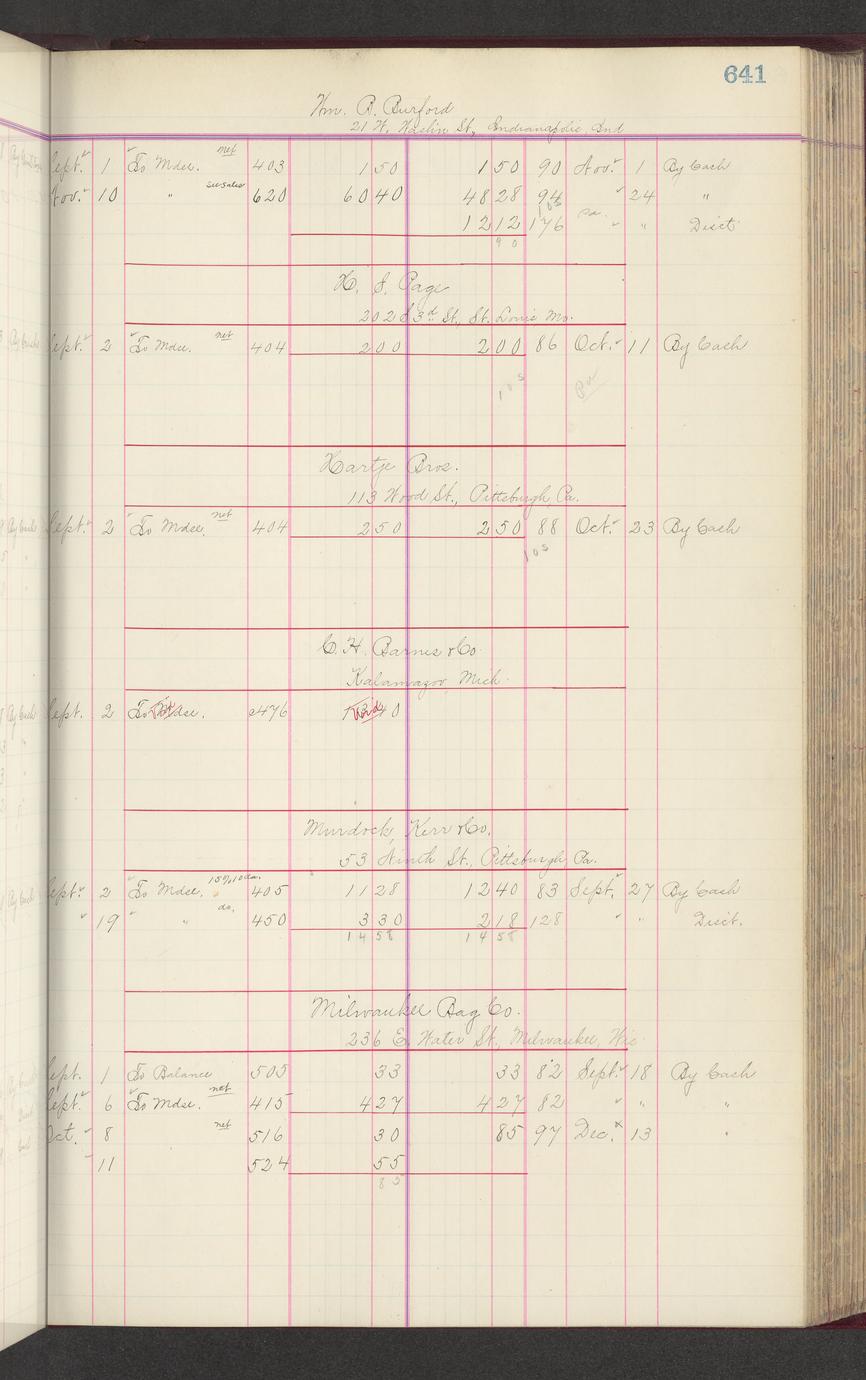 641
Wm. B. Burford
21 W. St., Indianapolis, Ind
Sept. 1 To Mdse. net 403 1 50 1 50 90 Nov. 1 By Cash
Nov. 10 " see sales 620 60 40 48 28 94 " 24 "
12 12 176 " " Disct.
90
H. S. Page
202 S 3rd St., St. Louis Mo.
Sept. 2 To Mdse. net 404 2 00 2 00 86 Oct. 11 By Cash
Hartje Bros.
113 Wood St., Pittsburgh, Pa.
Sept. 2 To Mdse. net 404 2 50 2 50 88 Oct. 23 By Cash
C. H. Barnes & Co.
Kalamazoo, Mich.
Sept. 2 To Mdse. 476 40
Murdock, Kerr & Co.
53 Ninth St., Pittsburgh, Pa.
Sept. 2 To Mdse. 405 11 28 12 40 83 Sept. 27 By Cash
" 19 " " do. 450 3 30 2 18 128 " " Disct.
14 58 14 58
Milwaukee Bag Co.
236 E. Water St., Milwaukee, Wis.
Sept. 1 To Balance 505 33 33 82 Sept. 18 By Cash
Sept. 6 To Mdse. net 415 4 27 4 27 82 " " "
Oct. 8 net 516 30 85 97 Dec. 13 "
11 524 55
85